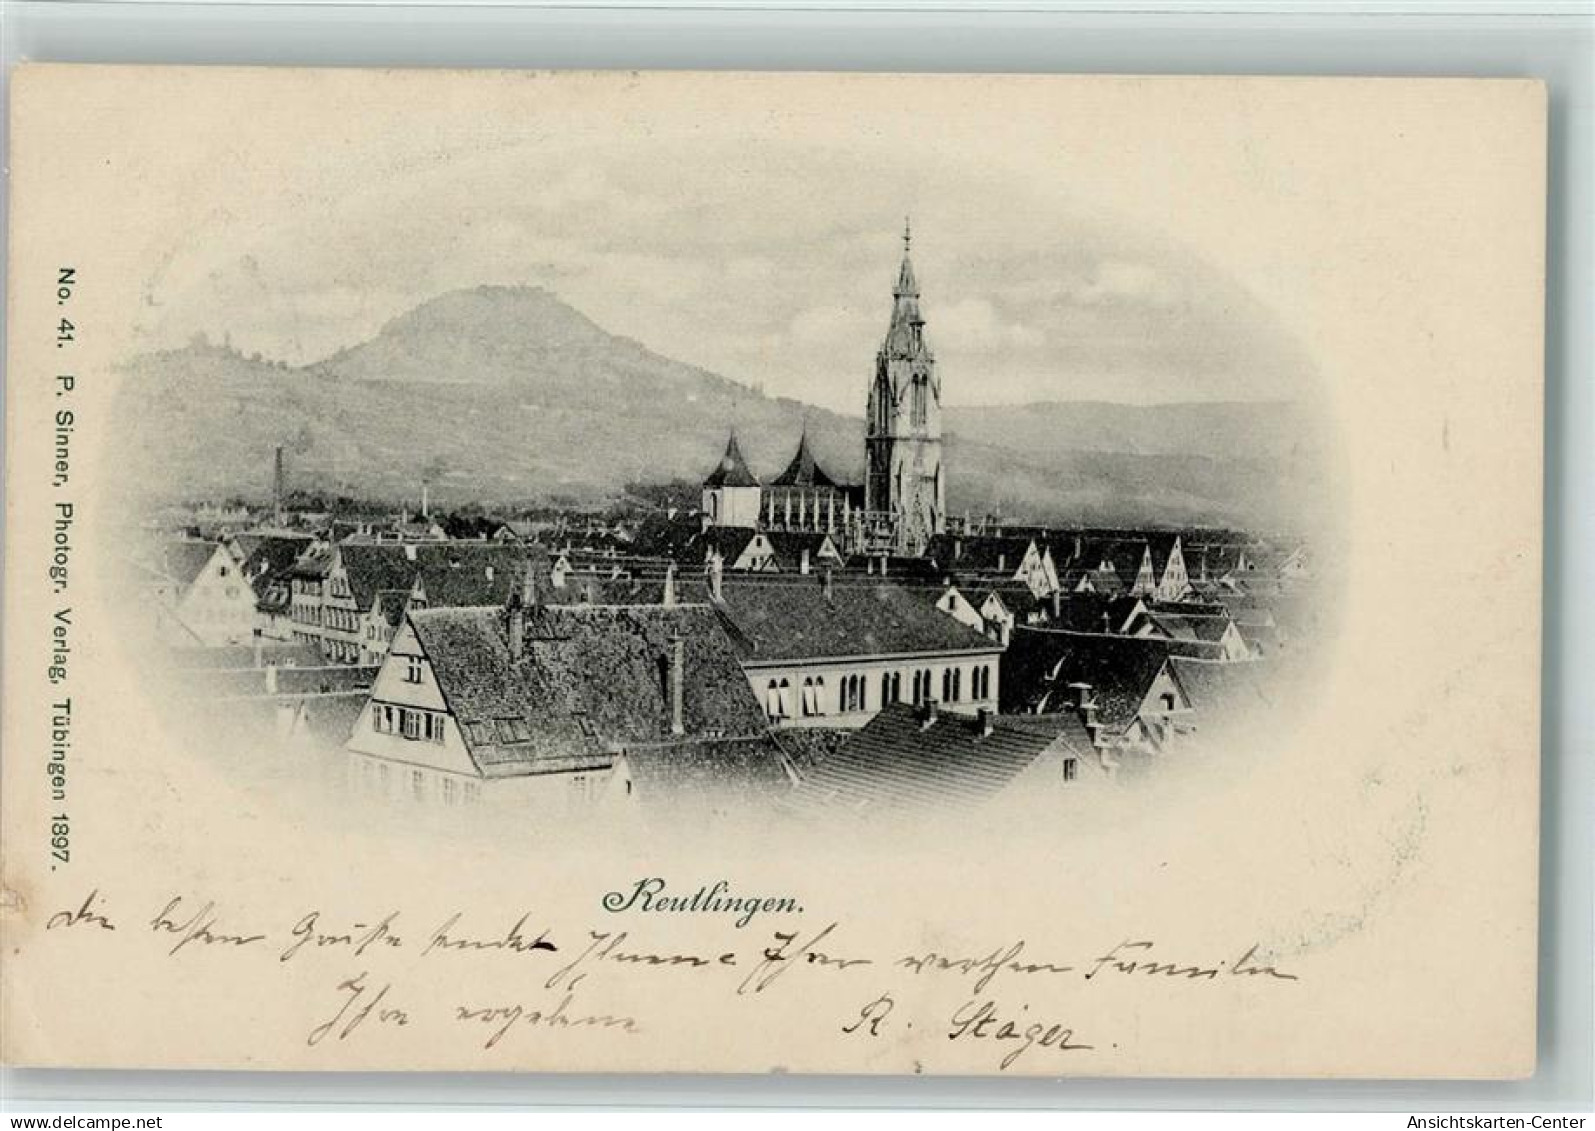 No. 41. P. Sinner, Photogr. Verlag, Tübingen 1897.
Reutlingen.
Die besten Grüße sendet Ihnen Ihrer werthen Familie
Ihre ergebene R. Stäger.
delcampe.net
Ansichtskarten-Center